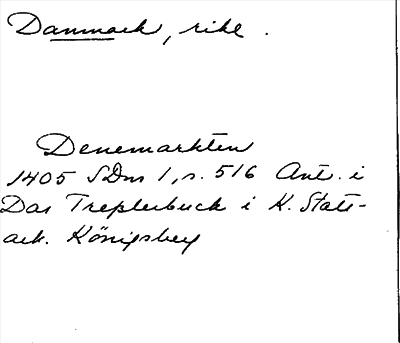 Danmark, rike.
Denemarkten
1405 SDns 1, s. 516 Ant. i
Das Treplerbuch i K. Stats-
ark. Königsberg